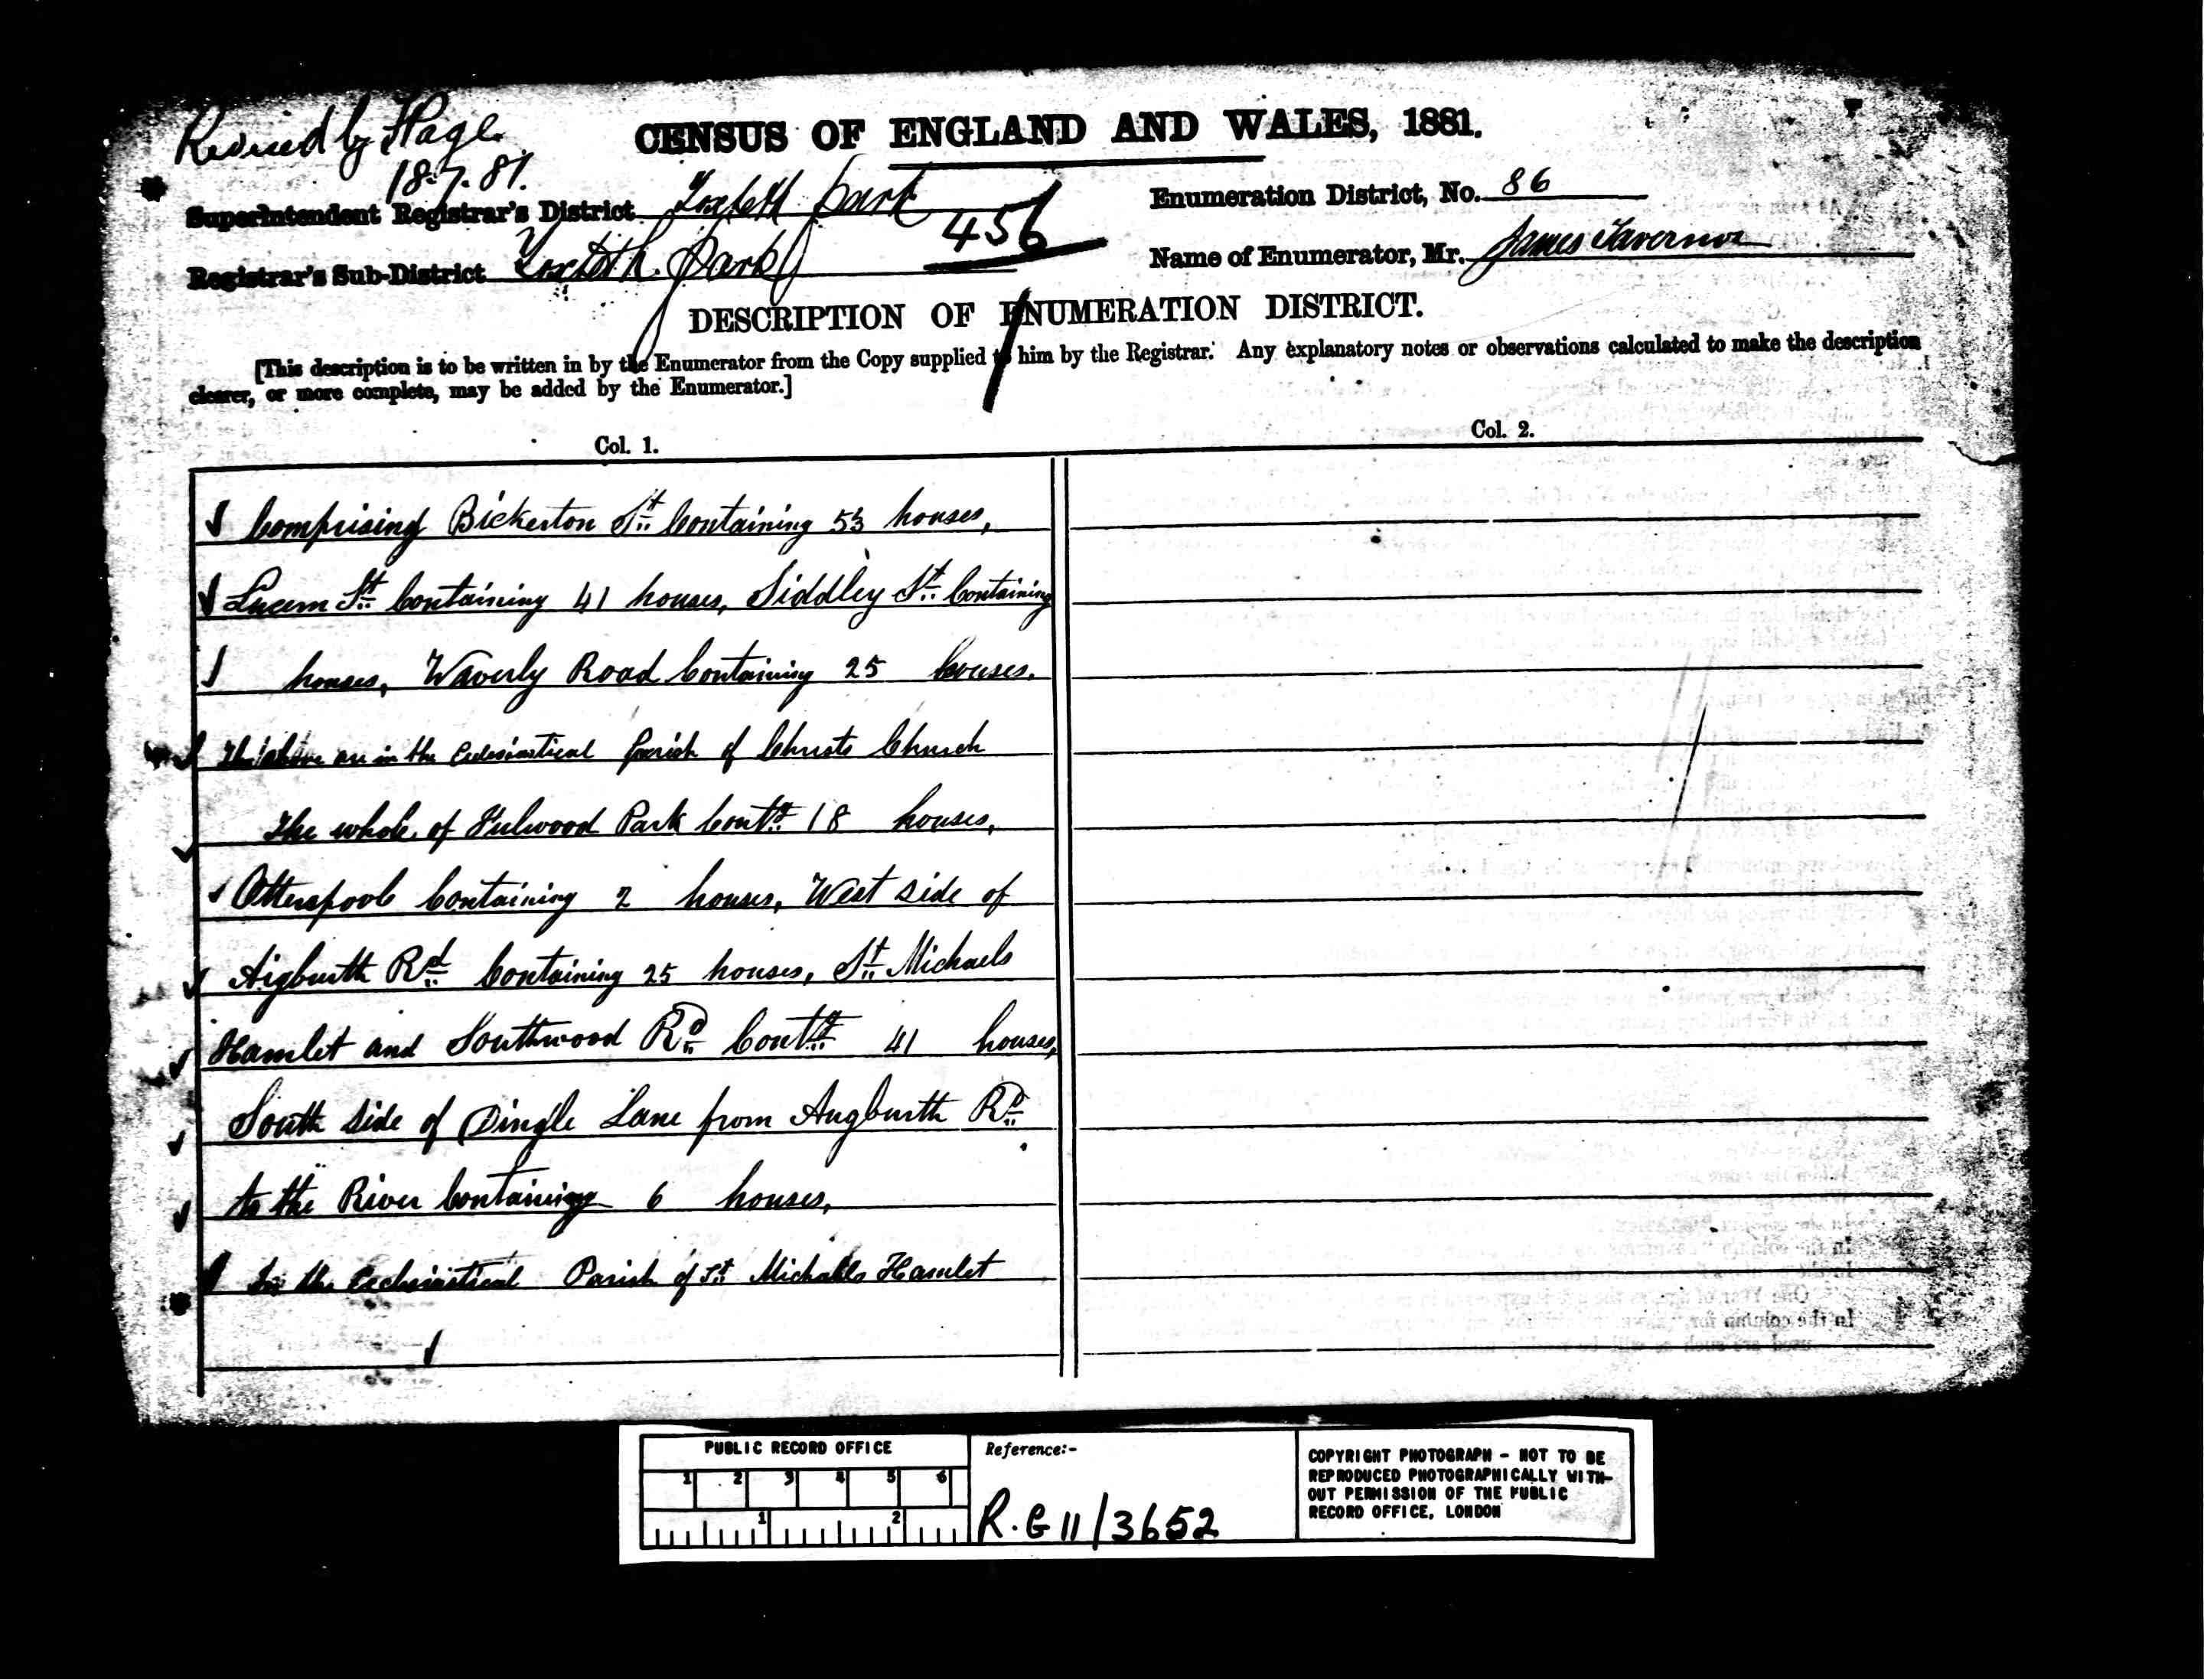 Revised by Page
18.7.81.
CENSUS OF ENGLAND AND WALES, 1881.
Superintendent Registrar's District Toxteth Park
456
Enumeration District, No. 86
Registrar's Sub-District Toxteth Park
Name of Enumerator, Mr. James Tavernor
DESCRIPTION OF ENUMERATION DISTRICT.
[This description is to be written in by the Enumerator from the Copy supplied to him by the Registrar. Any explanatory notes or observations calculated to make the description
clearer, or more complete, may be added by the Enumerator.]
Col. 1.
Col. 2.
Comprising Bickerton St. Containing 53 houses,
Lucern St. Containing 41 houses, Siddley St. Containing
houses, Waverly Road Containing 25 houses.
The above are in the Ecclesiastical parish of Christs Church
The whole of Fulwood Park Contg. 18 houses,
Otterspool Containing 2 houses, West side of
Aigburth Rd. Containing 25 houses, St. Michaels
Hamlet and Southwood Rd. Contg. 41 houses,
South side of Dingle Lane from Augburth Rd.
to the River Containing 6 houses,
In the Ecclesiastical Parish of St. Michaels Hamlet
PUBLIC RECORD OFFICE
1 2 3 4 5 6
1 2
Reference:-
R.G 11/3652
COPYRIGHT PHOTOGRAPH - NOT TO BE
REPRODUCED PHOTOGRAPHICALLY WITH-
OUT PERMISSION OF THE PUBLIC
RECORD OFFICE, LONDON